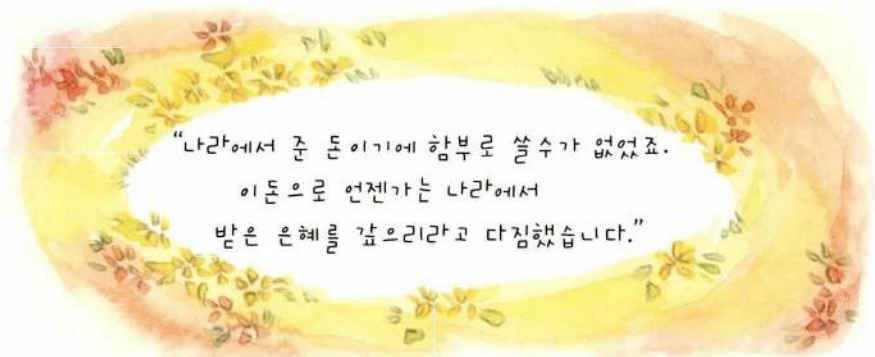 “나라에서 준 돈이기에 함부로 쓸수가 없었죠.
이돈으로 언젠가는 나라에서
받은 은혜를 갚으리라고 다짐했습니다.”